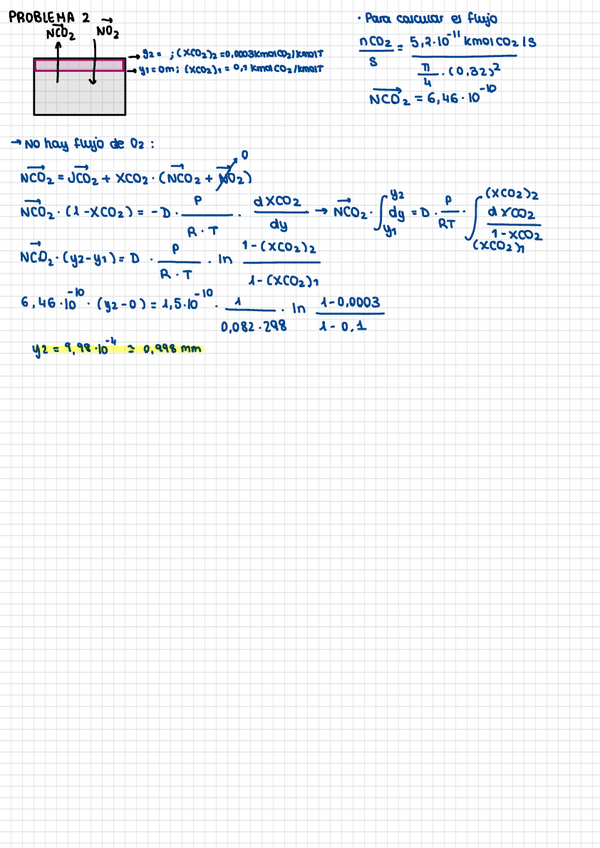 PROBLEMA 2
NCO₂ NO₂
→ y₂ = ; (XCO₂)₂ = 0,0003 kmol CO₂/kmol T
→ y₁ = 0m ; (XCO₂)₁ = 0,1 kmol CO₂/kmol T
· Para calcular el flujo
nCO₂/S = 5,2·10⁻¹¹ kmol CO₂/s / π/4 · (0,32)²
NCO₂ = 6,46·10⁻¹⁰
→ No hay flujo de O₂ :
NCO₂ = JCO₂ + XCO₂ · (NCO₂ + NO₂) 0
NCO₂ · (1-XCO₂) = -D · P/R·T · dXCO₂/dy → NCO₂ · ∫y₁^y₂ dy = D · P/RT · ∫(XCO₂)₁^(XCO₂)₂ dXCO₂/1-XCO₂
NCO₂ · (y₂-y₁) = D · P/R·T · ln 1-(XCO₂)₂/1-(XCO₂)₁
6,46·10⁻¹⁰ · (y₂-0) = 1,5·10⁻¹⁰ · 1/0,082·298 · ln 1-0,0003/1-0,1
y₂ = 9,98·10⁻⁴ ≃ 0,998 mm